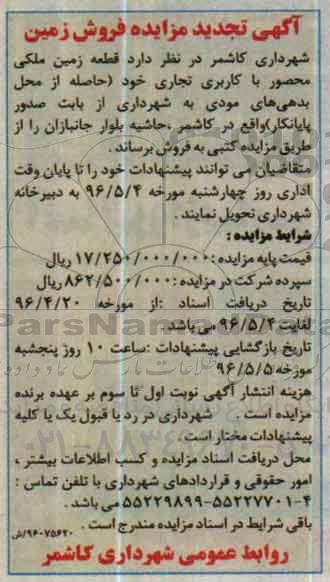 آگهی تجدید مزایده فروش زمین
شهرداری کاشمر در نظر دارد قطعه زمین ملکی
محصور با کاربری تجاری خود (حاصله از محل
بدهی‌های مودی به شهرداری از بابت صدور
پایانکار)واقع در کاشمر ،حاشیه بلوار جانبازان را از
طریق مزایده کتبی به فروش برساند .
متقاضیان می توانند پیشنهادات خود را تا پایان وقت
اداری روز چهارشنبه مورخه ۹۶/۵/۴ به دبیرخانه
شهرداری تحویل نمایند .
شرایط مزایده :
قیمت پایه مزایده : ۱۷/۲۵۰/۰۰۰/۰۰۰ ریال
سپرده شرکت در مزایده : ۸۶۲/۵۰۰/۰۰۰ ریال
تاریخ دریافت اسناد :از مورخه ۹۶/۴/۲۰
لغایت ۹۶/۵/۴ می باشد .
تاریخ بازگشایی پیشنهادات :ساعت ۱۰ روز پنجشبه
مورخه ۹۶/۵/۵
هزینه انتشار آگهی نوبت اول تا سوم بر عهده برنده
مزایده است . شهرداری در رد یا قبول یک یا کلیه
پیشنهادات مختار است .
محل دریافت اسناد مزایده و کسب اطلاعات بیشتر ،
امور حقوقی و قراردادهای شهرداری با تلفن تماس :
۴-۵۵۲۲۷۷۰۱-۵۵۲۲۹۸۹۹ می باشد .
باقی شرایط در اسناد مزایده مندرج است .
۹۶-۷۵۶۲۰/ش
روابط عمومی شهرداری کاشمر